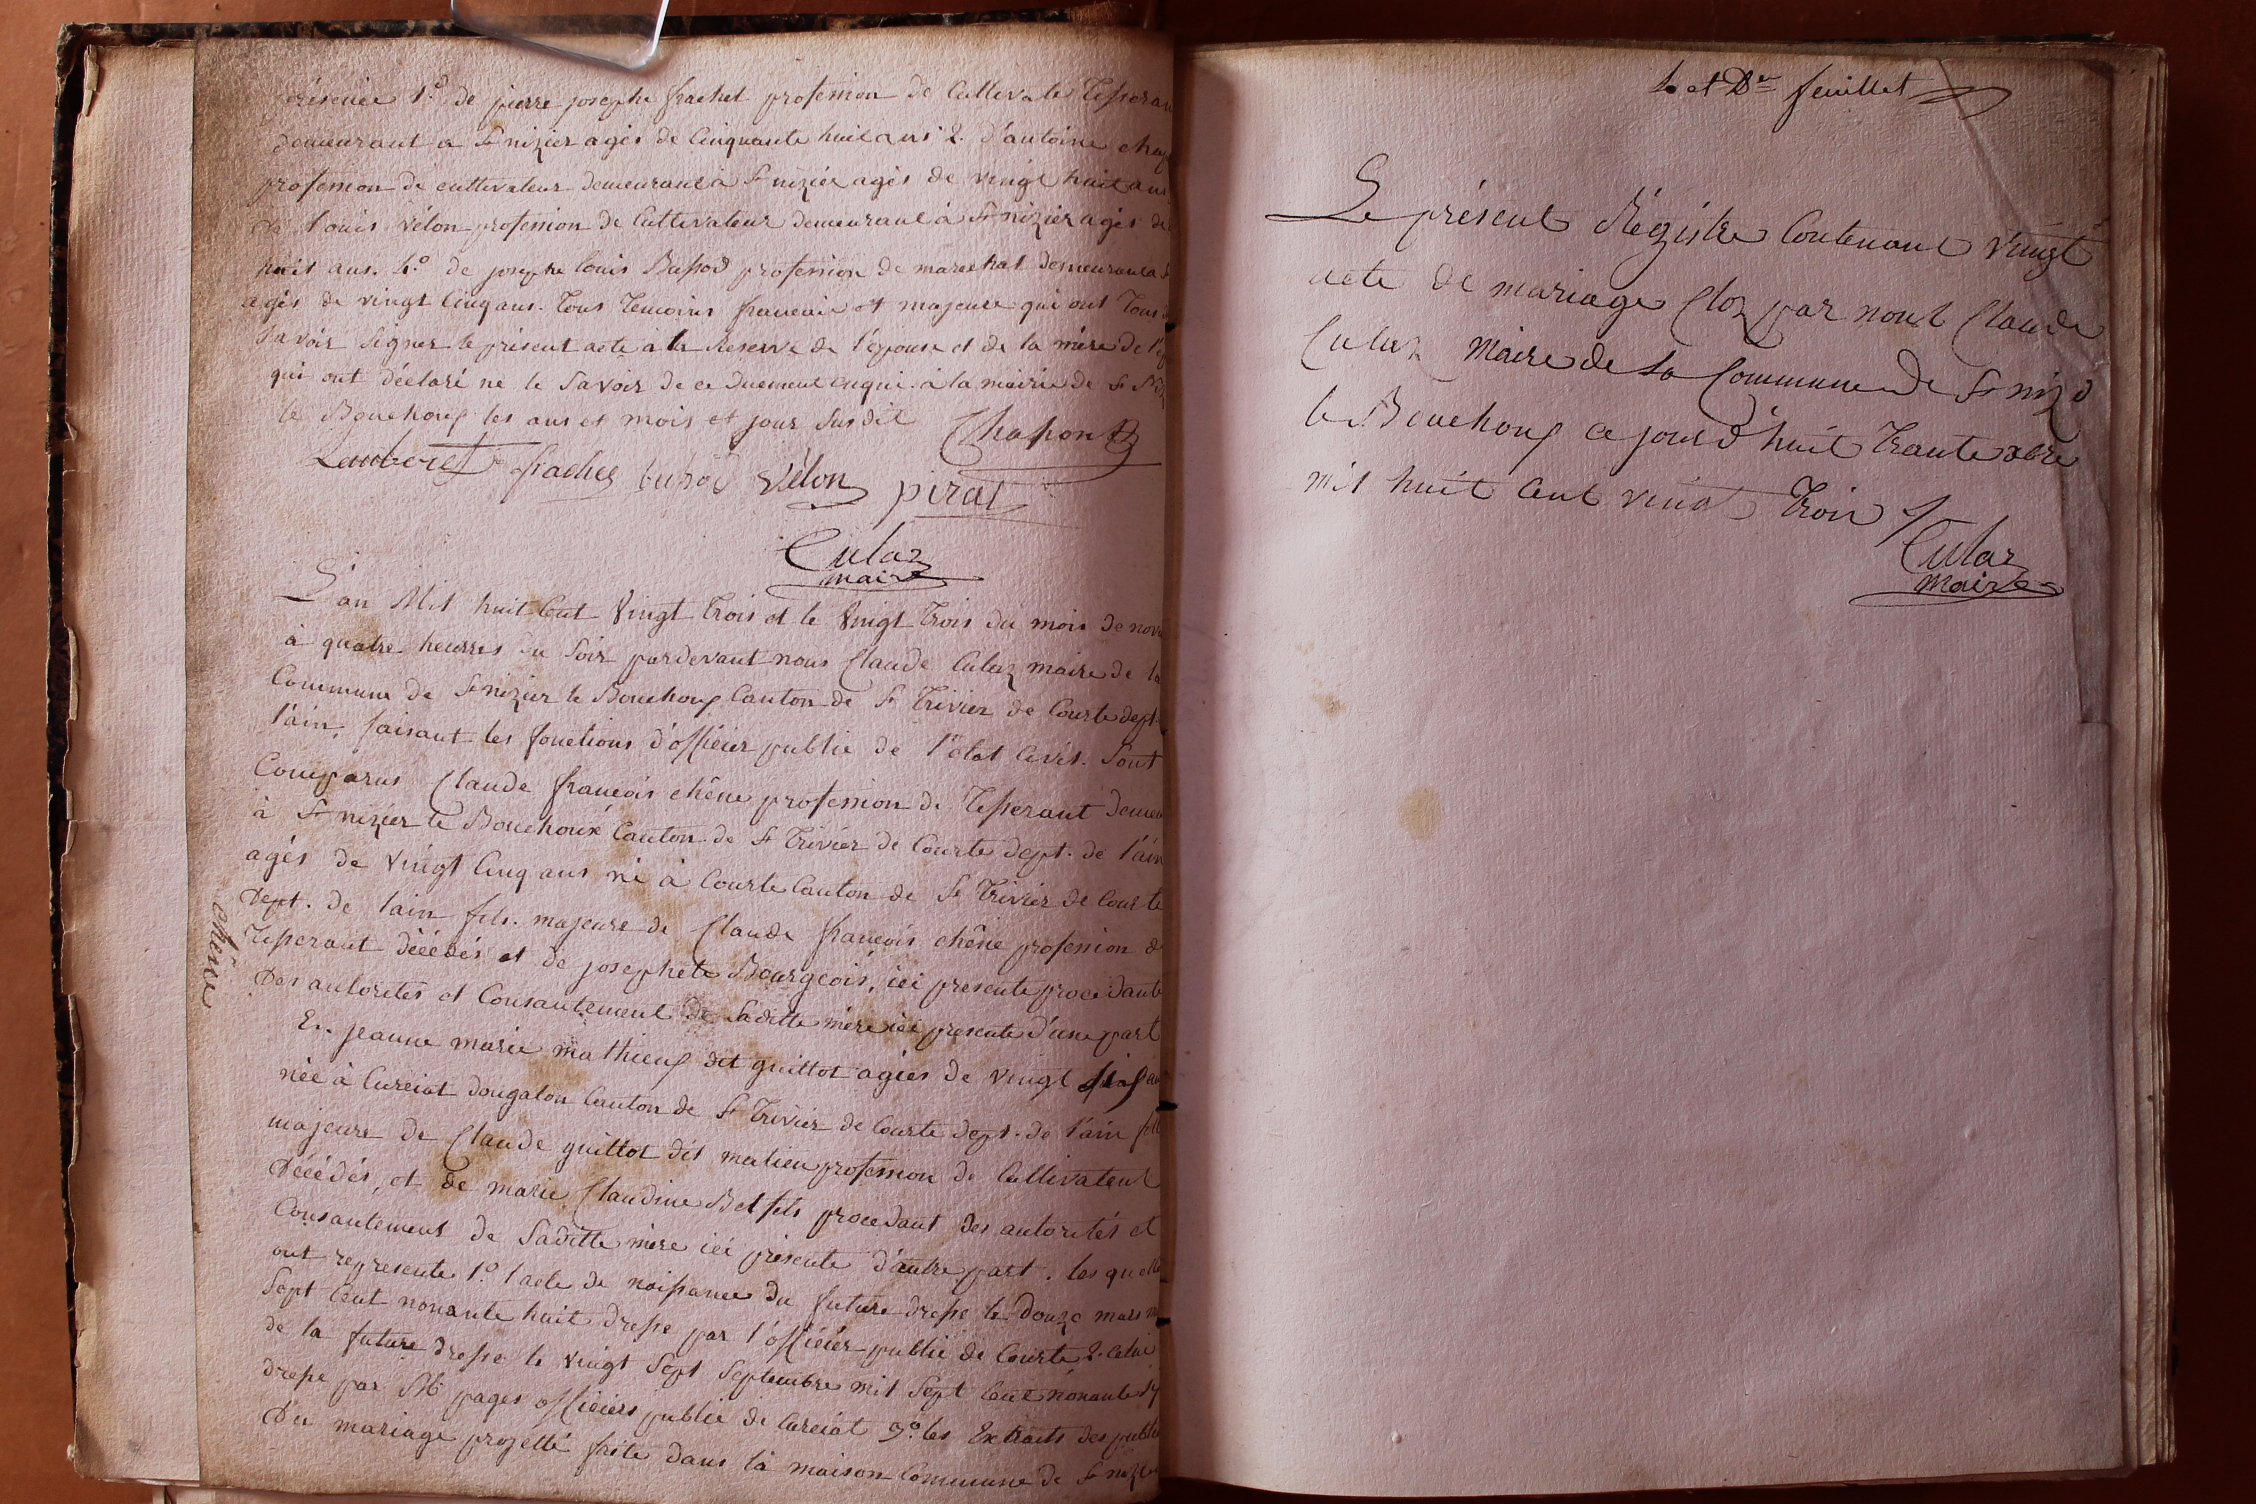 présence 1.º de pierre josephe frachet profession de Cultivate Tisseran
demeurant a St nizier agés de Cinquante huit ans 2. d'antoine chap
profession de cultivateur demeurant à St nizier agés de vingt huit ans
de louis Vélon profession de Cultivateur demeurant à St nizier agés de
huit ans. 4.º de josephe louis profession de marechal demeurant a S
agés de vingt Cinq ans. Tous Temoins francais et majeure qui ont Tous
Savoir Signer le présent acte à la Reserve de l'épouse et de la mère de l'ep
qui ont déclaré ne le Savoir de ce duement enqui. à la mairie de St Niz
le Bouchoux les ans et mois et jour Susdit Chapon
frachet Vélon pirat
Culaz
maire
L'an Mil huit Cent Vingt Trois et le Vingt Trois du mois de nov
à quatre heures du Soir pardevant nous Claude Culaz maire de la
Commune de St nizier le Bouchoux Canton de St Trivier de Courte dept.
l'ain, faisant les fonctions d'officier public de l'état Civil. Sont
Comparus Claude francois chêne profession de Tisserant demeu
à St nizier le Bouchoux Canton de St Trivier de Courte dept. de l'ain
agés de vingt Cinq ans né à Courte Canton de St Trivier de Courte
Dept. de lain fils. majeure de Claude francois chêne profession d
Tisserant décédés et de josephete Bourgeois, ici presente procedante
Des autorites et Consantement de Saditte mère ici presente d'une part
Et. jeanne marie mathieux dit guillot agies de vingt
née à Cureiat dongalon Canton de St Trivier de Courte dept. de l'ain fill
majeure de Claude guillot dit matieu profession de Cultivateur
Décédés, et de marie Claudine Bel fils procedant des autorités et
Consantement de Saditte mère ici présente d'autre part. les quelle
ont represente 1.º l'acte de naissance du future dresse le Douze mars m
Sept Cent nonante huit dresse par l'officier public de Courte 2. celui
de la future dresse le vingt Sept Septembre mil Sept Cent nonante
dresse par Mr pages officiers public de Cureiat 3.º les Extraits des public
Du mariage projetté faite dans la maison Commune de St nizi
chêne
feuillet
Le présent Régistre Contenant Vingt
acte de mariage Cloz par nous Claude
Culaz Maire de la Commune de St niz d
le Bouchoux ce jourd'huit Trante xbre
mil huit Cent vingt Trois
Culaz
maire